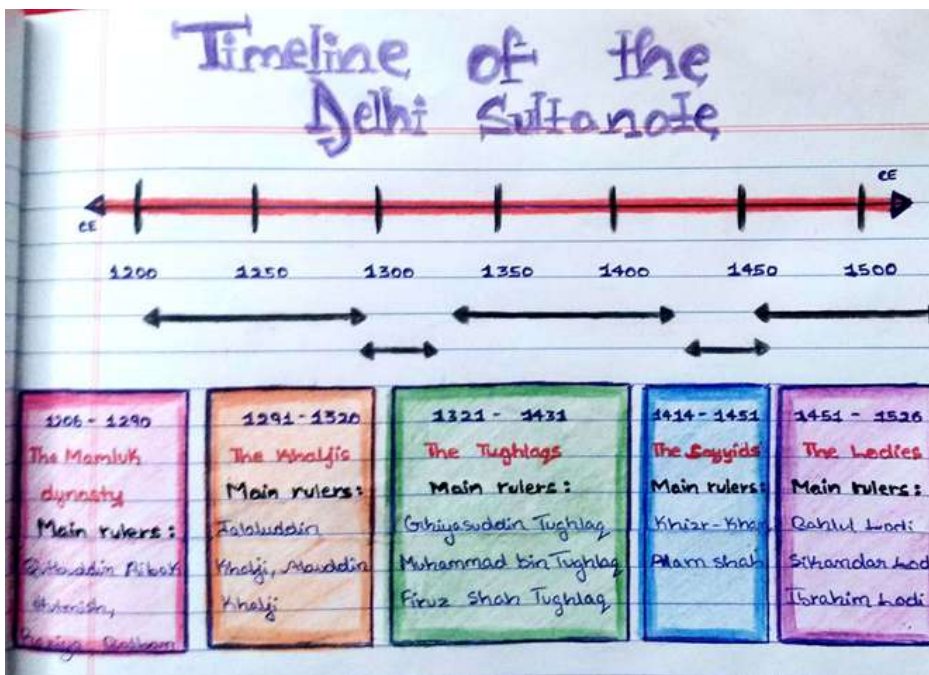 Timeline of the
Delhi Sultanate
CE
CE
1200 1250 1300 1350 1400 1450 1500
1206 - 1290
The Mamluk
dynasty
Main rulers:
Qutbuddin Aibak
Iltutmish,
Raziya
1291-1320
The Khaljis
Main rulers:
Jalaluddin
Khalji, Alauddin
Khalji
1321 - 1431
The Tughlaqs
Main rulers:
Ghiyasuddin Tughlaq
Muhammad bin Tughlaq
Firuz Shah Tughlaq
1414-1451
The Sayyids
Main rulers:
Khizr-Khan
Alam shah
1451 - 1526
The Lodies
Main rulers:
Bahlul Lodi
Sikandar Lod
Ibrahim Lodi